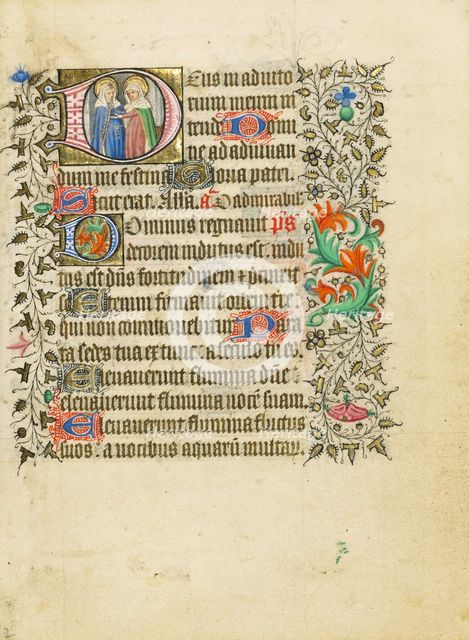 Deus in adiuto
rium meum in
tende Dom
ne ad adiuuan
dum me festina Gloria patri.
Sicut erat. Alla. a. O admirabil
Dominus regnauit ps
decorem indutus est: indu
tus est dn̄s fortitudinem et p̄cinxit
Etenim firmauit orbem tre
qui non commouebitur Para
ta sedes tua ex tunc: a seculo tu es.
Eleuauerunt flumina dn̄e
eleuauerunt flumina uocē suam
Eleuauerunt flumina fluctus
suos: a uocibus aquarū multar̄
Heritage